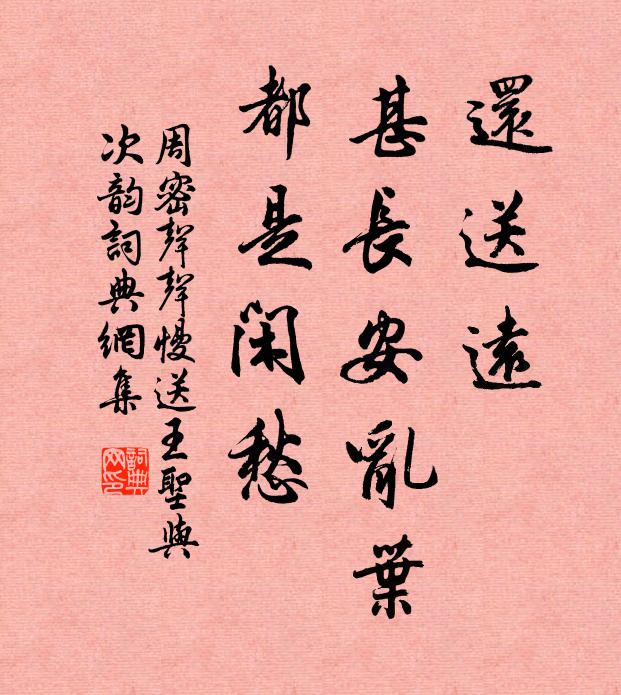 還送遠
甚長安亂葉
都是閑愁
周密聲聲慢送王聖與
次韵詞典網集
詞典網印